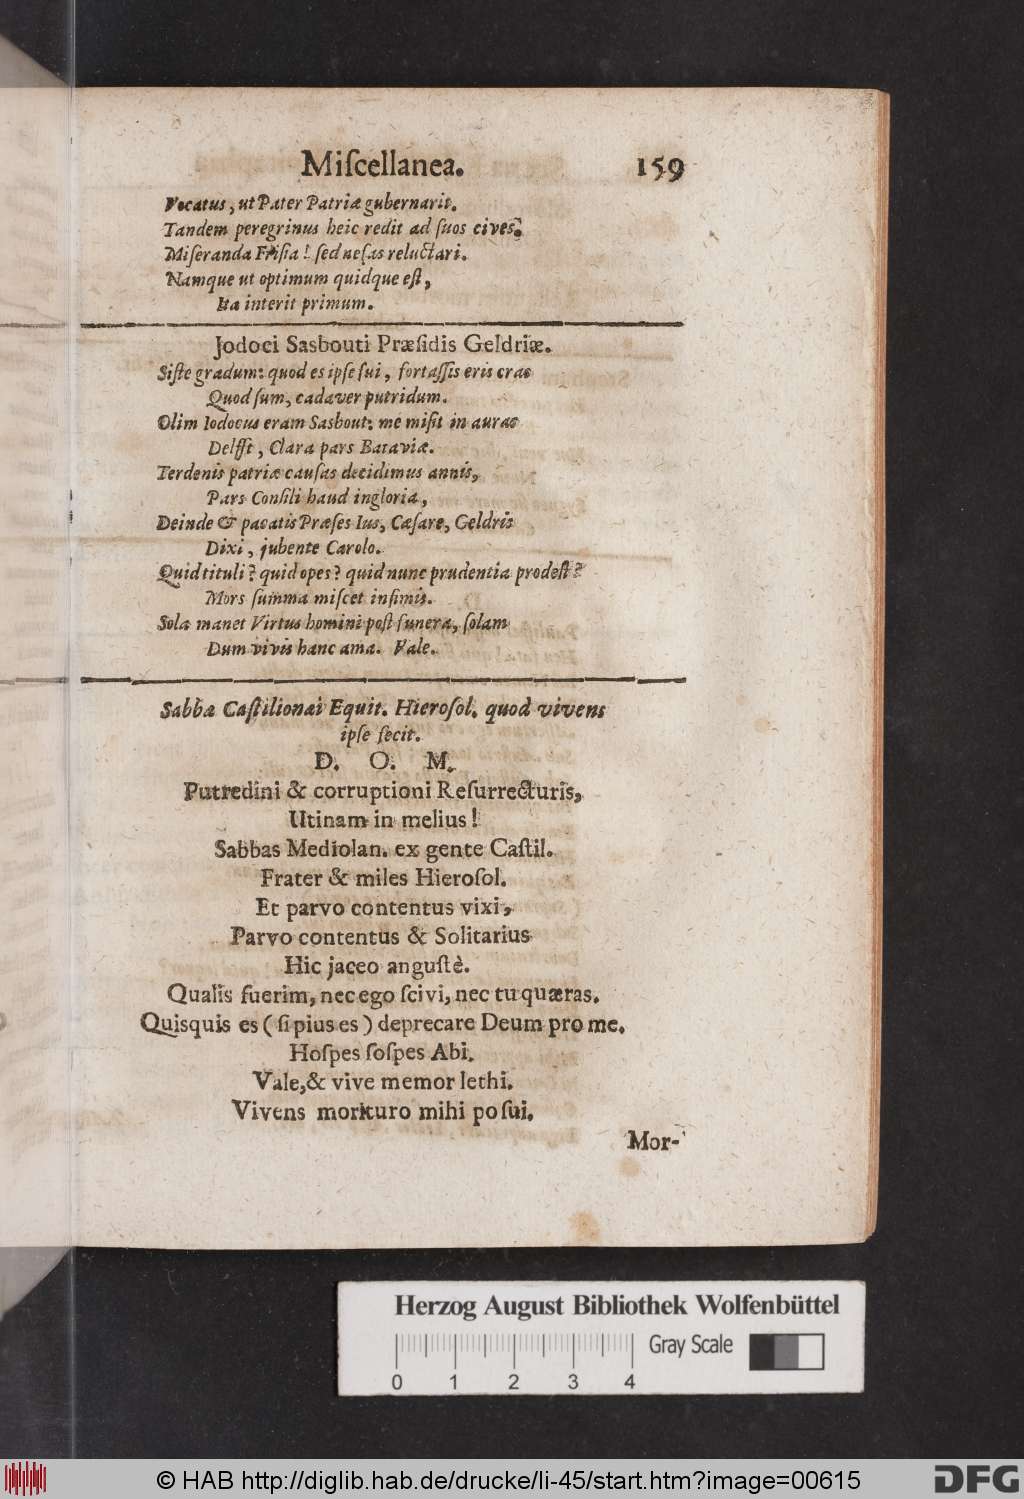 Miſcellanea. 159
Vocatus, ut Pater Patriæ gubernarit.
Tandem peregrinus heic redit ad ſuos cives.
Miſeranda Friſia! ſed nefas reluctari.
Namque ut optimum quidque eſt,
Ita interit primum.
Jodoci Sasbouti Præſidis Geldriæ.
Siſte gradum: quod es ipſe fui, fortaſſis eris cras
Quod ſum, cadaver putridum.
Olim Iodocus eram Sasbout: me miſit in auras
Delfft, Clara pars Bataviæ.
Terdenis patriæ cauſas decidimus annis,
Pars Conſili haud ingloria,
Deinde & pacatis Præſes Ius, Cæſare, Geldris
Dixi, jubente Carolo.
Quid tituli? quid opes? quid nunc prudentia prodeſt?
Mors ſumma miſcet infimis.
Sola manet Virtus homini poſt funera, ſolam
Dum vivis hanc ama. Vale.
Sabba Caſtilionai Equit. Hieroſol. quod vivens
ipſe fecit.
D. O. M.
Putredini & corruptioni Reſurrecturis,
Utinam in melius!
Sabbas Mediolan. ex gente Caſtil.
Frater & miles Hieroſol.
Et parvo contentus vixi,
Parvo contentus & Solitarius
Hic jaceo anguſtè.
Qualis fuerim, nec ego ſcivi, nec tu quæras.
Quisquis es (ſi pius es) deprecare Deum pro me.
Hoſpes ſoſpes Abi.
Vale, & vive memor lethi.
Vivens morituro mihi poſui.
Mor-
Herzog August Bibliothek Wolfenbüttel
Gray Scale
0 1 2 3 4
© HAB http://diglib.hab.de/drucke/li-45/start.htm?image=00615
DFG